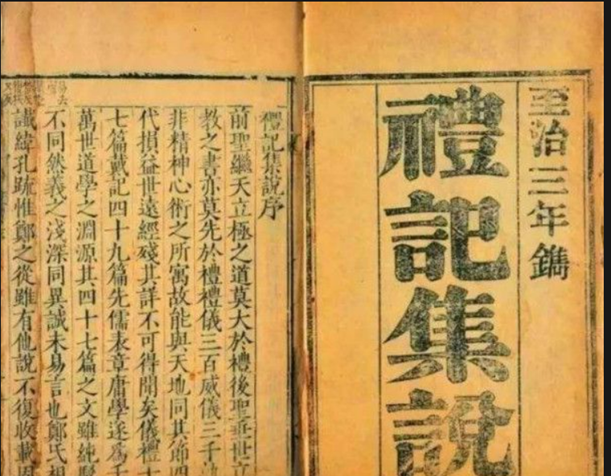 至治三年鐫
禮記集說
禮記集說序
前聖繼天立極之道莫大於禮後聖垂世立
教之書亦莫先於禮禮儀三百威儀三千
非精神心術之所寓故能與天地同其節四
代損益世遠經殘其詳不可得聞矣儀禮十
七篇戴記四十九篇先儒表章庸學遂為千
萬世道學之淵源其四十七篇之文雖純駁
不同然義之淺深同異誠未易言也鄭氏祖
讖緯孔疏惟鄭之從雖有他說不復收載固